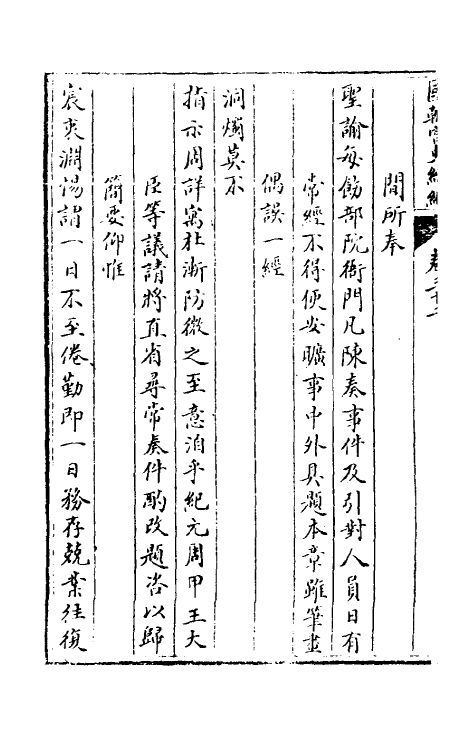 國朝宮史續編 卷三十二
間所奉
聖諭每飭部院衙門凡陳奏事件及引對人員日有
常經不得便安曠事中外具題本章雖筆畫
偶誤一經
洞燭莫不
指示周詳寓杜漸防微之至意洎乎紀元周甲王大
臣等議請將直省尋常奏件酌改題咨以歸
簡要仰惟
宸衷淵惕謂一日不至倦勤即一日務存兢業往復